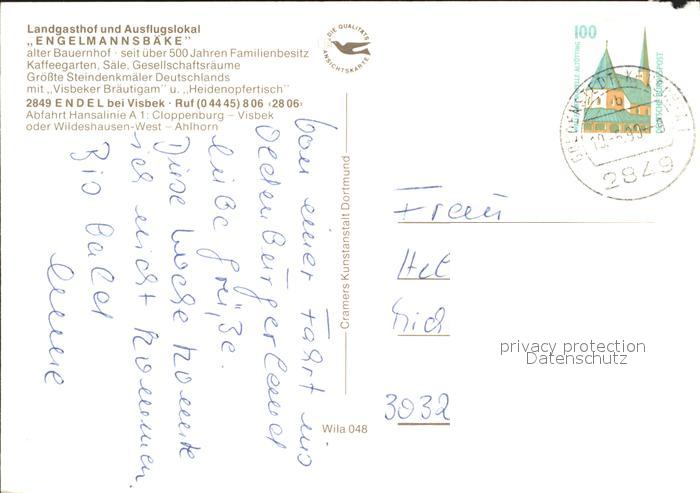 Landgasthof und Ausflugslokal
„ENGELMANNSBÄKE"
alter Bauernhof · seit über 500 Jahren Familienbesitz
Kaffeegarten, Säle, Gesellschaftsräume
Größte Steindenkmäler Deutschlands
mit „Visbeker Bräutigam" u. „Heidenopfertisch"
2849 ENDEL bei Visbek · Ruf (0 44 45) 8 06 ‹28 06›
Abfahrt Hansalinie A 1: Cloppenburg – Visbek
oder Wildeshausen-West – Ahlhorn
DIE QUALITÄTS
ANSICHTSKARTE
100
DEUTSCHE BUNDESPOST
2849
Von einer Fahrt ins
Oldenburgerland
liebe Grüße.
Diese Woche konnte
ich nicht kommen.
Bis bald
Cramers Kunstanstalt Dortmund
Wila 048
Frau
Hel
3032
privacy protection
Datenschutz